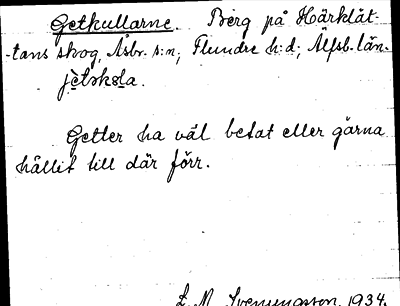 Getkullarne. Berg på Härklät-
-tans skog, Åsbr. s:n, Flundre h:d, Älfsb. län.
jètskola.
Getter ha väl betat eller gärna
hållit till där förr.
E. M. Svenungsson. 1934.